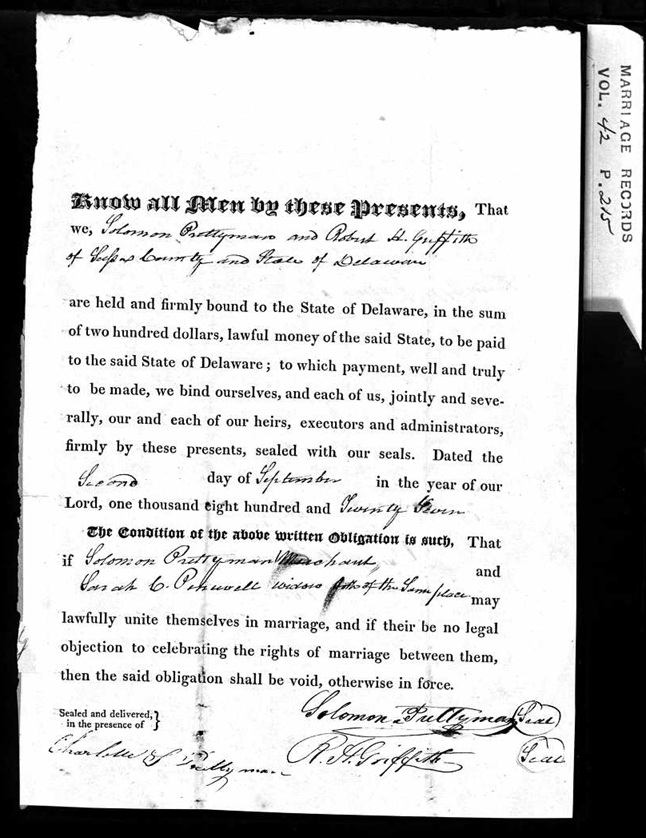 MARRIAGE RECORDS
VOL. 42 P. 215
Know all Men by these Presents, That
we, Solomon Prettyman and Robert H. Griffith
of Sussex County and State of Delaware
are held and firmly bound to the State of Delaware, in the sum
of two hundred dollars, lawful money of the said State, to be paid
to the said State of Delaware; to which payment, well and truly
to be made, we bind ourselves, and each of us, jointly and seve-
rally, our and each of our heirs, executors and administrators,
firmly by these presents, sealed with our seals. Dated the
Second day of September in the year of our
Lord, one thousand eight hundred and Twenty Seven
The Condition of the above written Obligation is such, That
if Solomon Prettyman Merchant and
Sarah C. Penuwell widow both of the Same place may
lawfully unite themselves in marriage, and if their be no legal
objection to celebrating the rights of marriage between them,
then the said obligation shall be void, otherwise in force.
Sealed and delivered,
in the presence of }
Solomon Prettyman Seal
Charlotte S Prettyman
R. H. Griffith Seal